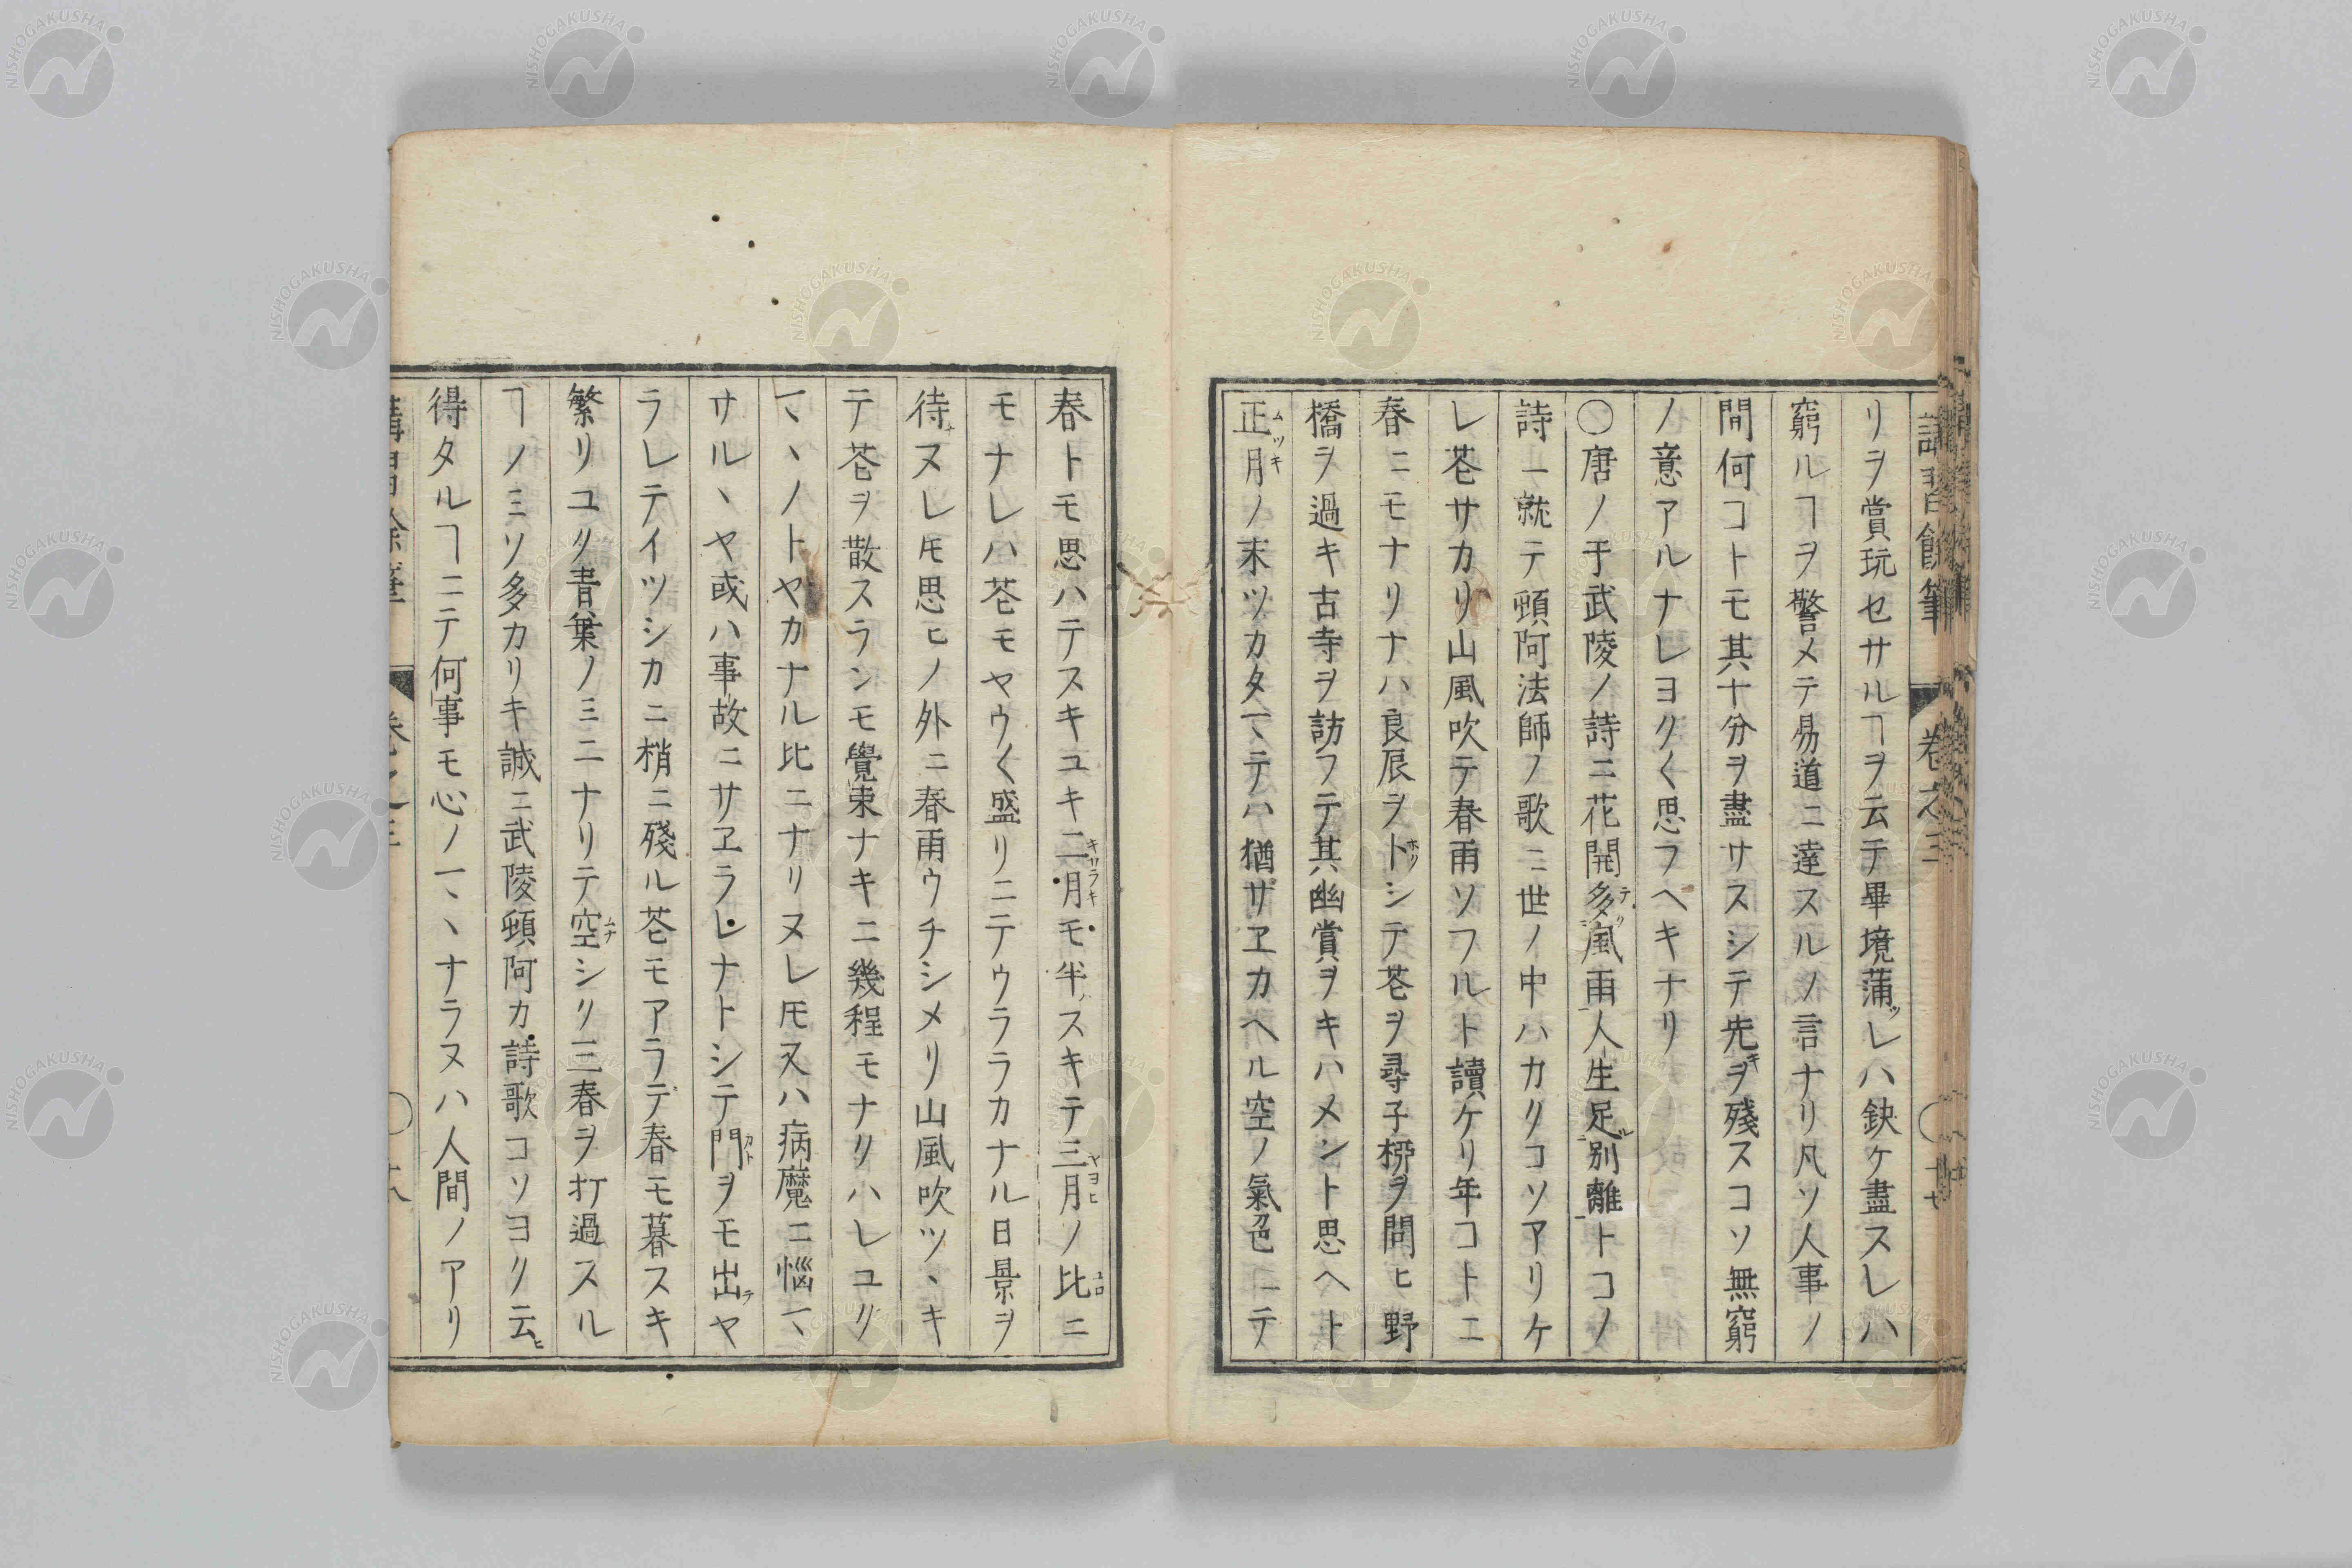 講習餘筆 卷之三 十七
リヲ賞玩セサルヿヲ云テ畢境蒲レハ鈌ケ盡スレハ
窮ルヿヲ警メテ易道ニ達スルノ言ナリ凡ソ人事ノ
間何コトモ其十分ヲ盡サスシテ先ヲ殘スコソ無窮
ノ意アルナレヨク〱思フヘキナリ
〇唐ノ于武陵ノ詩ニ花開多風雨人生足別離トコノ
詩ニ就テ頓阿法師ノ歌ニ世ノ中ハカクコソアリケ
レ苍サカリ山風吹テ春雨ソフルト讀ケリ年コトニ
春ニモナリナハ良辰ヲトシテ苍ヲ尋子桺ヲ問ヒ野
橋ヲ過キ古寺ヲ訪フテ其幽賞ヲキハメント思ヘト
正月ノ末ツカタマテハ猶サヱカヘル空ノ氣色ニテ
春トモ思ハテスキユキ二月モ半スキテ三月ノ比ニ
モナレハ苍モヤウ〱盛リニテウララカナル日景ヲ
待ヌレ𪜈思ヒノ外ニ春雨ウチシメリ山風吹ツヽキ
テ苍ヲ散スランモ覺束ナキニ幾程モナクハレユク
マヽノトヤカナル比ニナリヌレ𪜈又ハ病魔ニ惱マ
サルヽヤ或ハ事故ニサヱラレナトシテ門ヲモ出ヤ
ラレテイツシカニ梢ニ殘ル苍モアラデ春モ暮スキ
繁リユク青葉ノミニナリテ空シク三春ヲ打過スル
ヿノミソ多カリキ誠ニ武陵頓阿カ詩歌コソヨク云
得タルヿニテ何事モ心ノマヽナラヌハ人間ノアリ